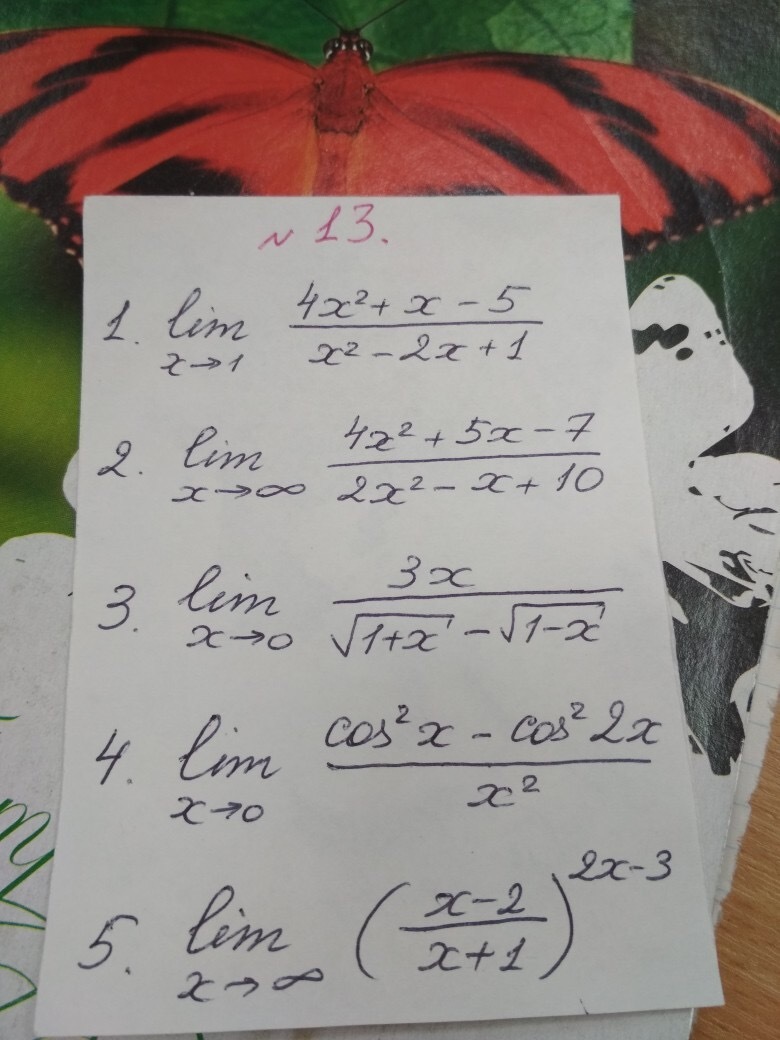 №13.
1. lim x→1 (4x² + x - 5)/(x² - 2x + 1)
2. lim x→∞ (4x² + 5x - 7)/(2x² - x + 10)
3. lim x→0 3x/(√(1+x) - √(1-x))
4. lim x→0 (cos²x - cos²2x)/x²
5. lim x→∞ ((x-2)/(x+1))^(2x-3)